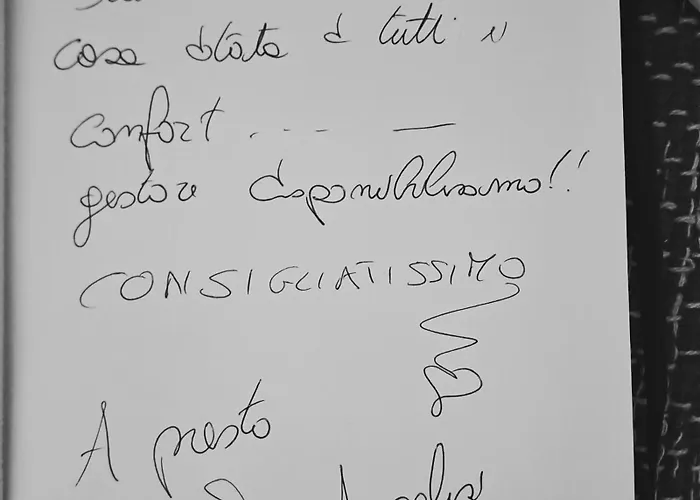 casa dotata di tutti i
confort . . . - - —
gestore disponibilissimo!!
CONSIGLIATISSIMO
A presto